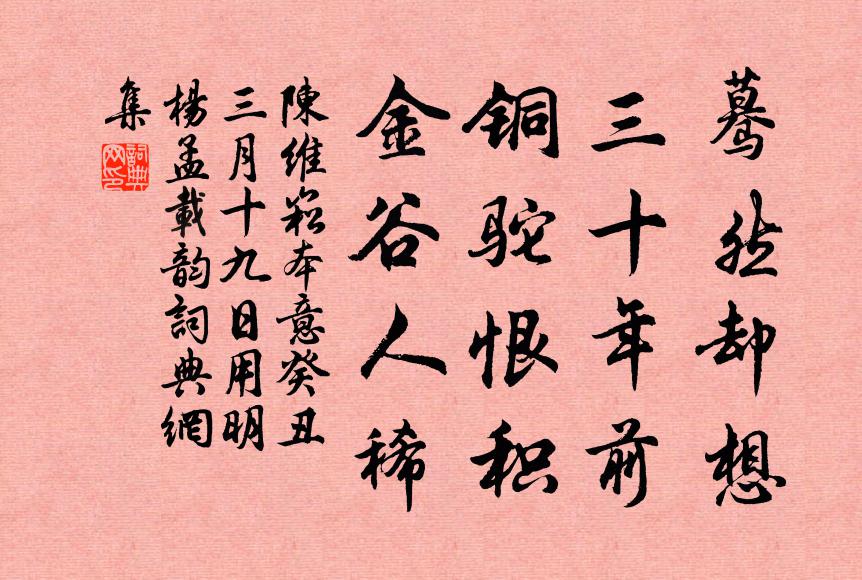 蓦然却想
三十年前
铜驼恨积
金谷人稀
陳維崧本意癸丑
三月十九日用明
楊孟載韵詞典網
集
詞典
网印